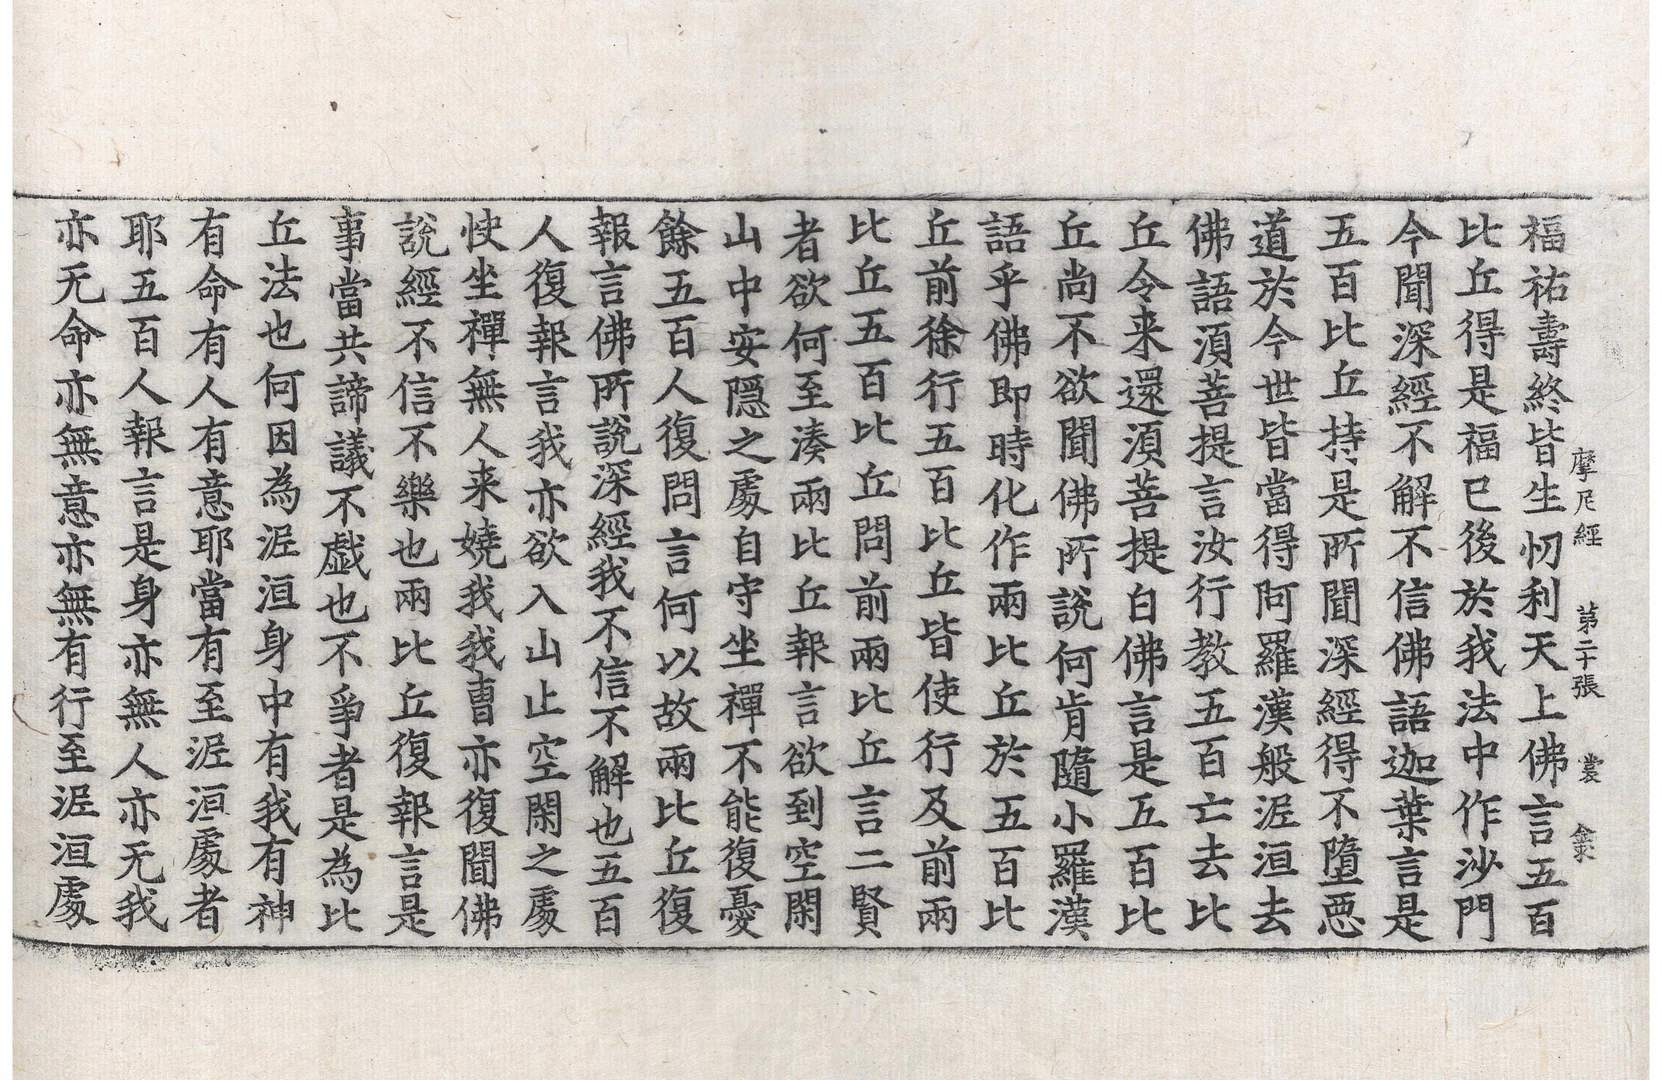 摩尼經　第二十張　裳
福祐壽終皆生忉利天上佛言五百
比丘得是福已後於我法中作沙門
今聞深經不解不信佛語迦葉言是
五百比丘持是所聞深經得不墮惡
道於今世皆當得阿羅漢般泥洹去
佛語湏菩提言汝行教五百亡去比
丘令来還湏菩提白佛言是五百比
丘尚不欲聞佛所說何肯隨小羅漢
語乎佛即時化作兩比丘於五百比
丘前徐行五百比丘皆使行及前兩
比丘五百比丘問前兩比丘言二賢
者欲何至湊兩比丘報言欲到空閑
山中安隱之處自守坐禪不能復憂
餘五百人復問言何以故兩比丘復
報言佛所說深經我不信不解也五百
人復報言我亦欲入山止空閑之處
快坐禪無人来嬈我我曹亦復聞佛
說經不信不樂也兩比丘復報言是
事當共諦議不戱也不爭者是為比
丘法也何因為泥洹身中有我有神
有命有人有意耶當有至泥洹處者
耶五百人報言是身亦無人亦无我
亦无命亦無意亦無有行至泥洹處